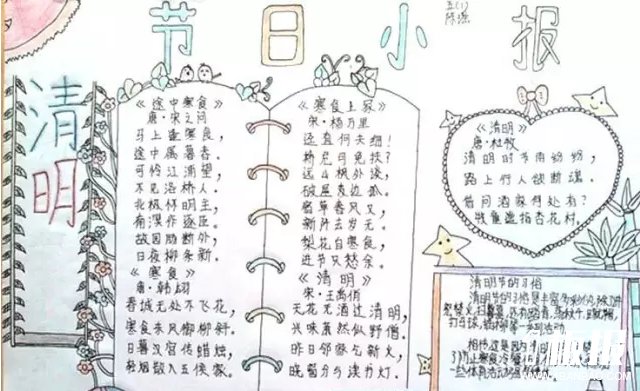 节日小报
五(1)
清明
《途中寒食》
唐·宋之问
马上逢寒食，
途中属暮春。
可怜江浦望，
不见洛桥人。
北极怀明主，
有溟作逐臣。
故园肠断处，
日夜柳条新。
《寒食》
唐·韩翃
春城无处不飞花，
寒食东风御柳斜。
日暮汉宫传蜡烛，
轻烟散入五侯家。
《寒食上冢》
宋·杨万里
迳直何夫细！
桥危可免扶？
远山枫外淡，
破屋麦边孤。
宿草春风又，
新阡去岁无。
梨花自寒食，
进节只愁余。
《清明》
宋·王禹偁
无花无酒过清明，
兴味萧然似野僧。
昨日邻家乞新火，
晓窗分与读书灯。
《清明》
唐·杜牧
清明时节雨纷纷，
路上行人欲断魂。
借问酒家何处有？
牧童遥指杏花村。
清明节的习俗
清明节的习俗是丰富
打马球、插柳等一系列活动
相传这是因为清明节